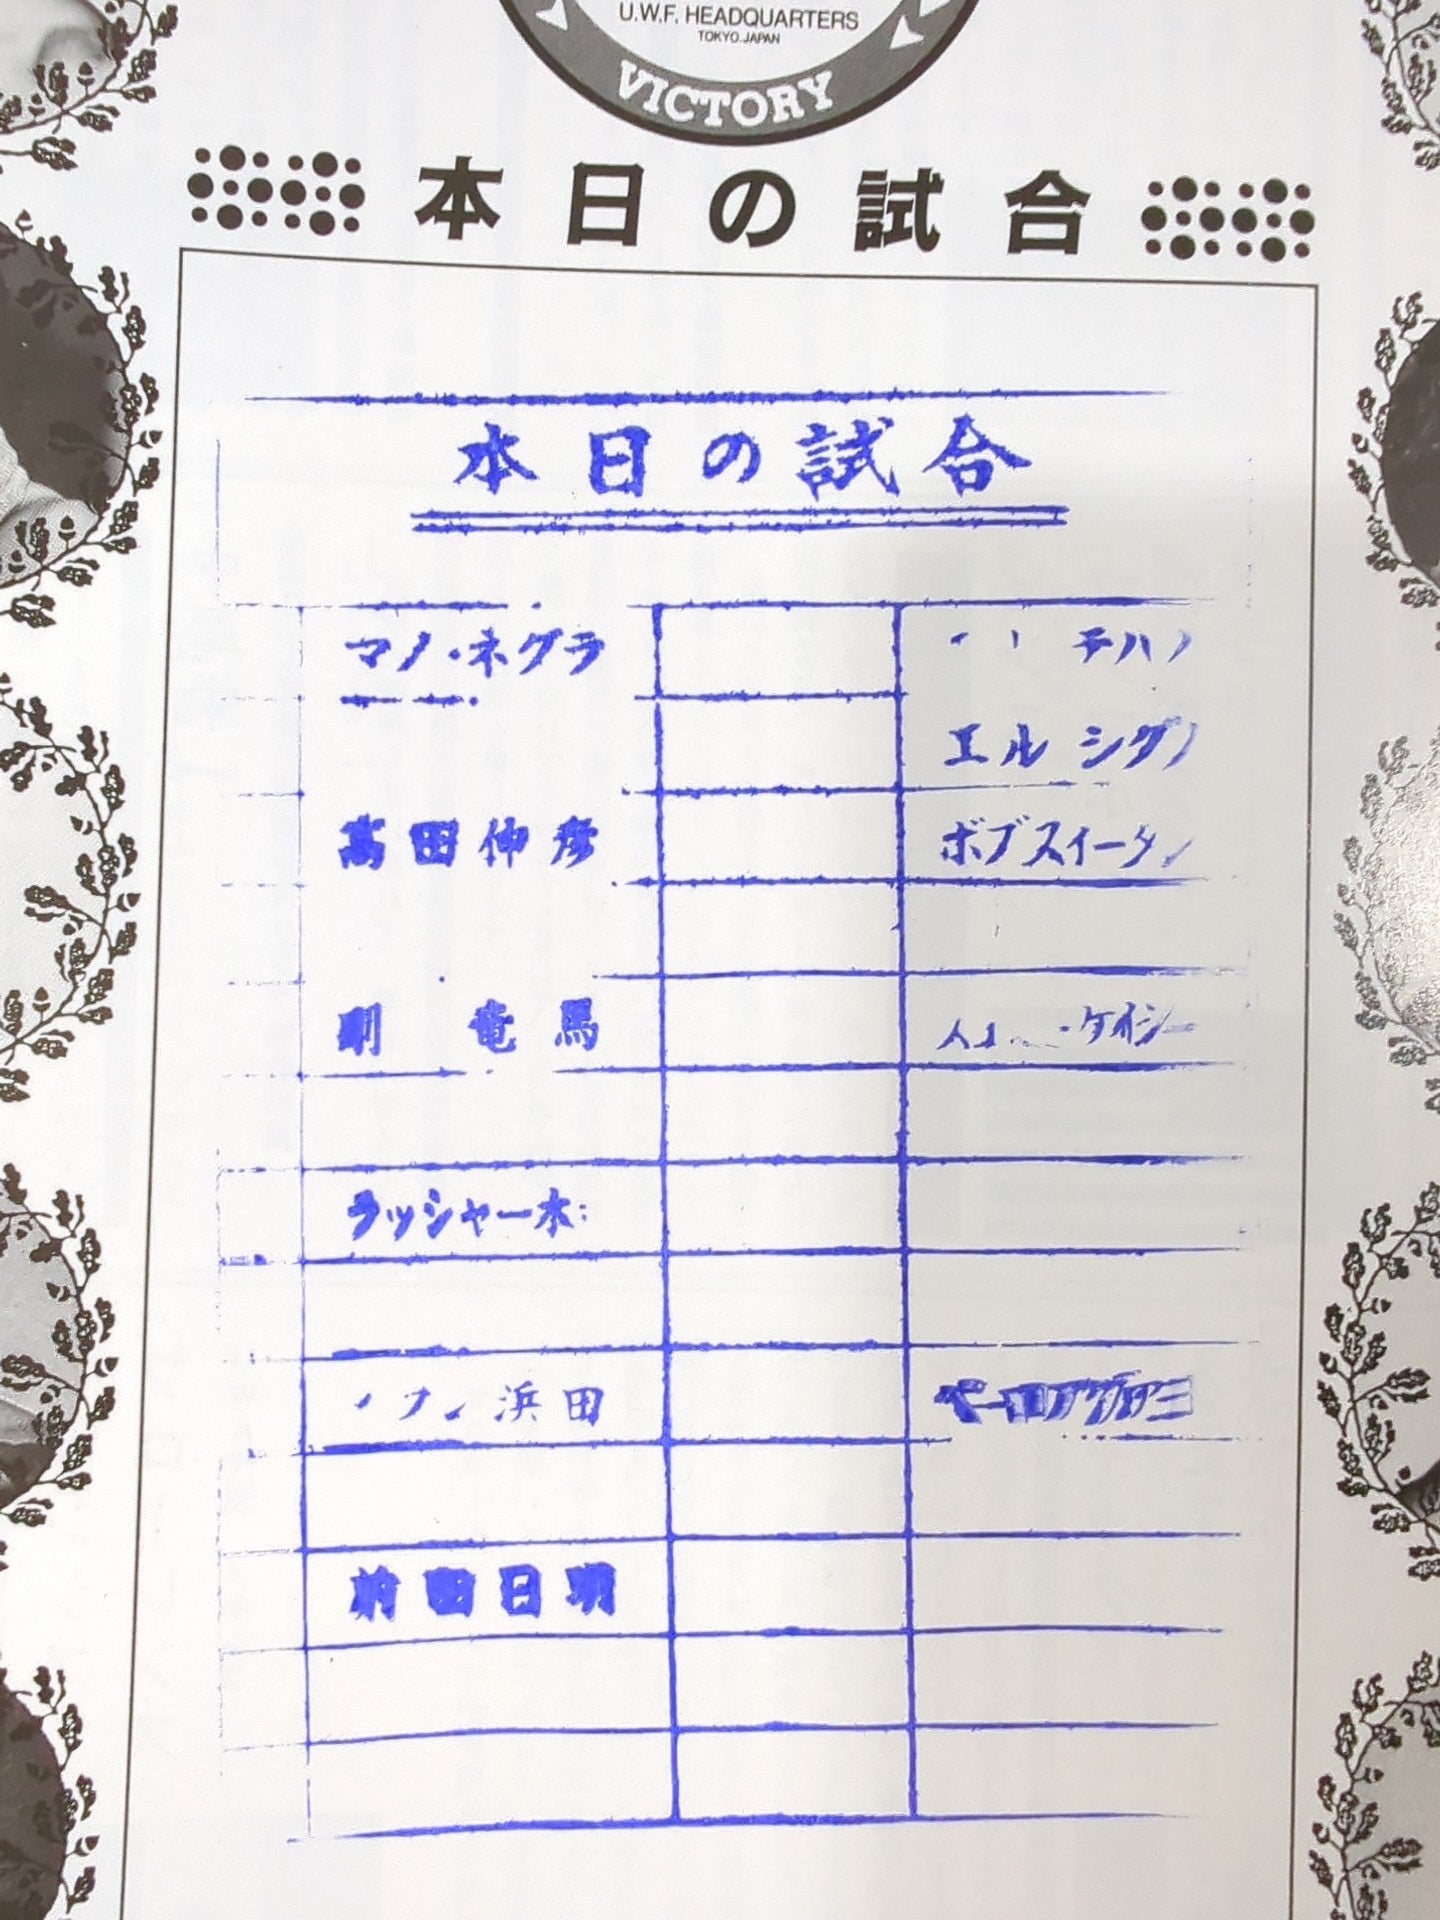 U.W.F. HEADQUARTERS
TOKYO.JAPAN
VICTORY
本日の試合
本日の試合
マノ・ネグラ
エル シグノ
高田伸彦 ボブスイータン
剛 竜馬 ケイシー
ラッシャー木
浜田
前田日明